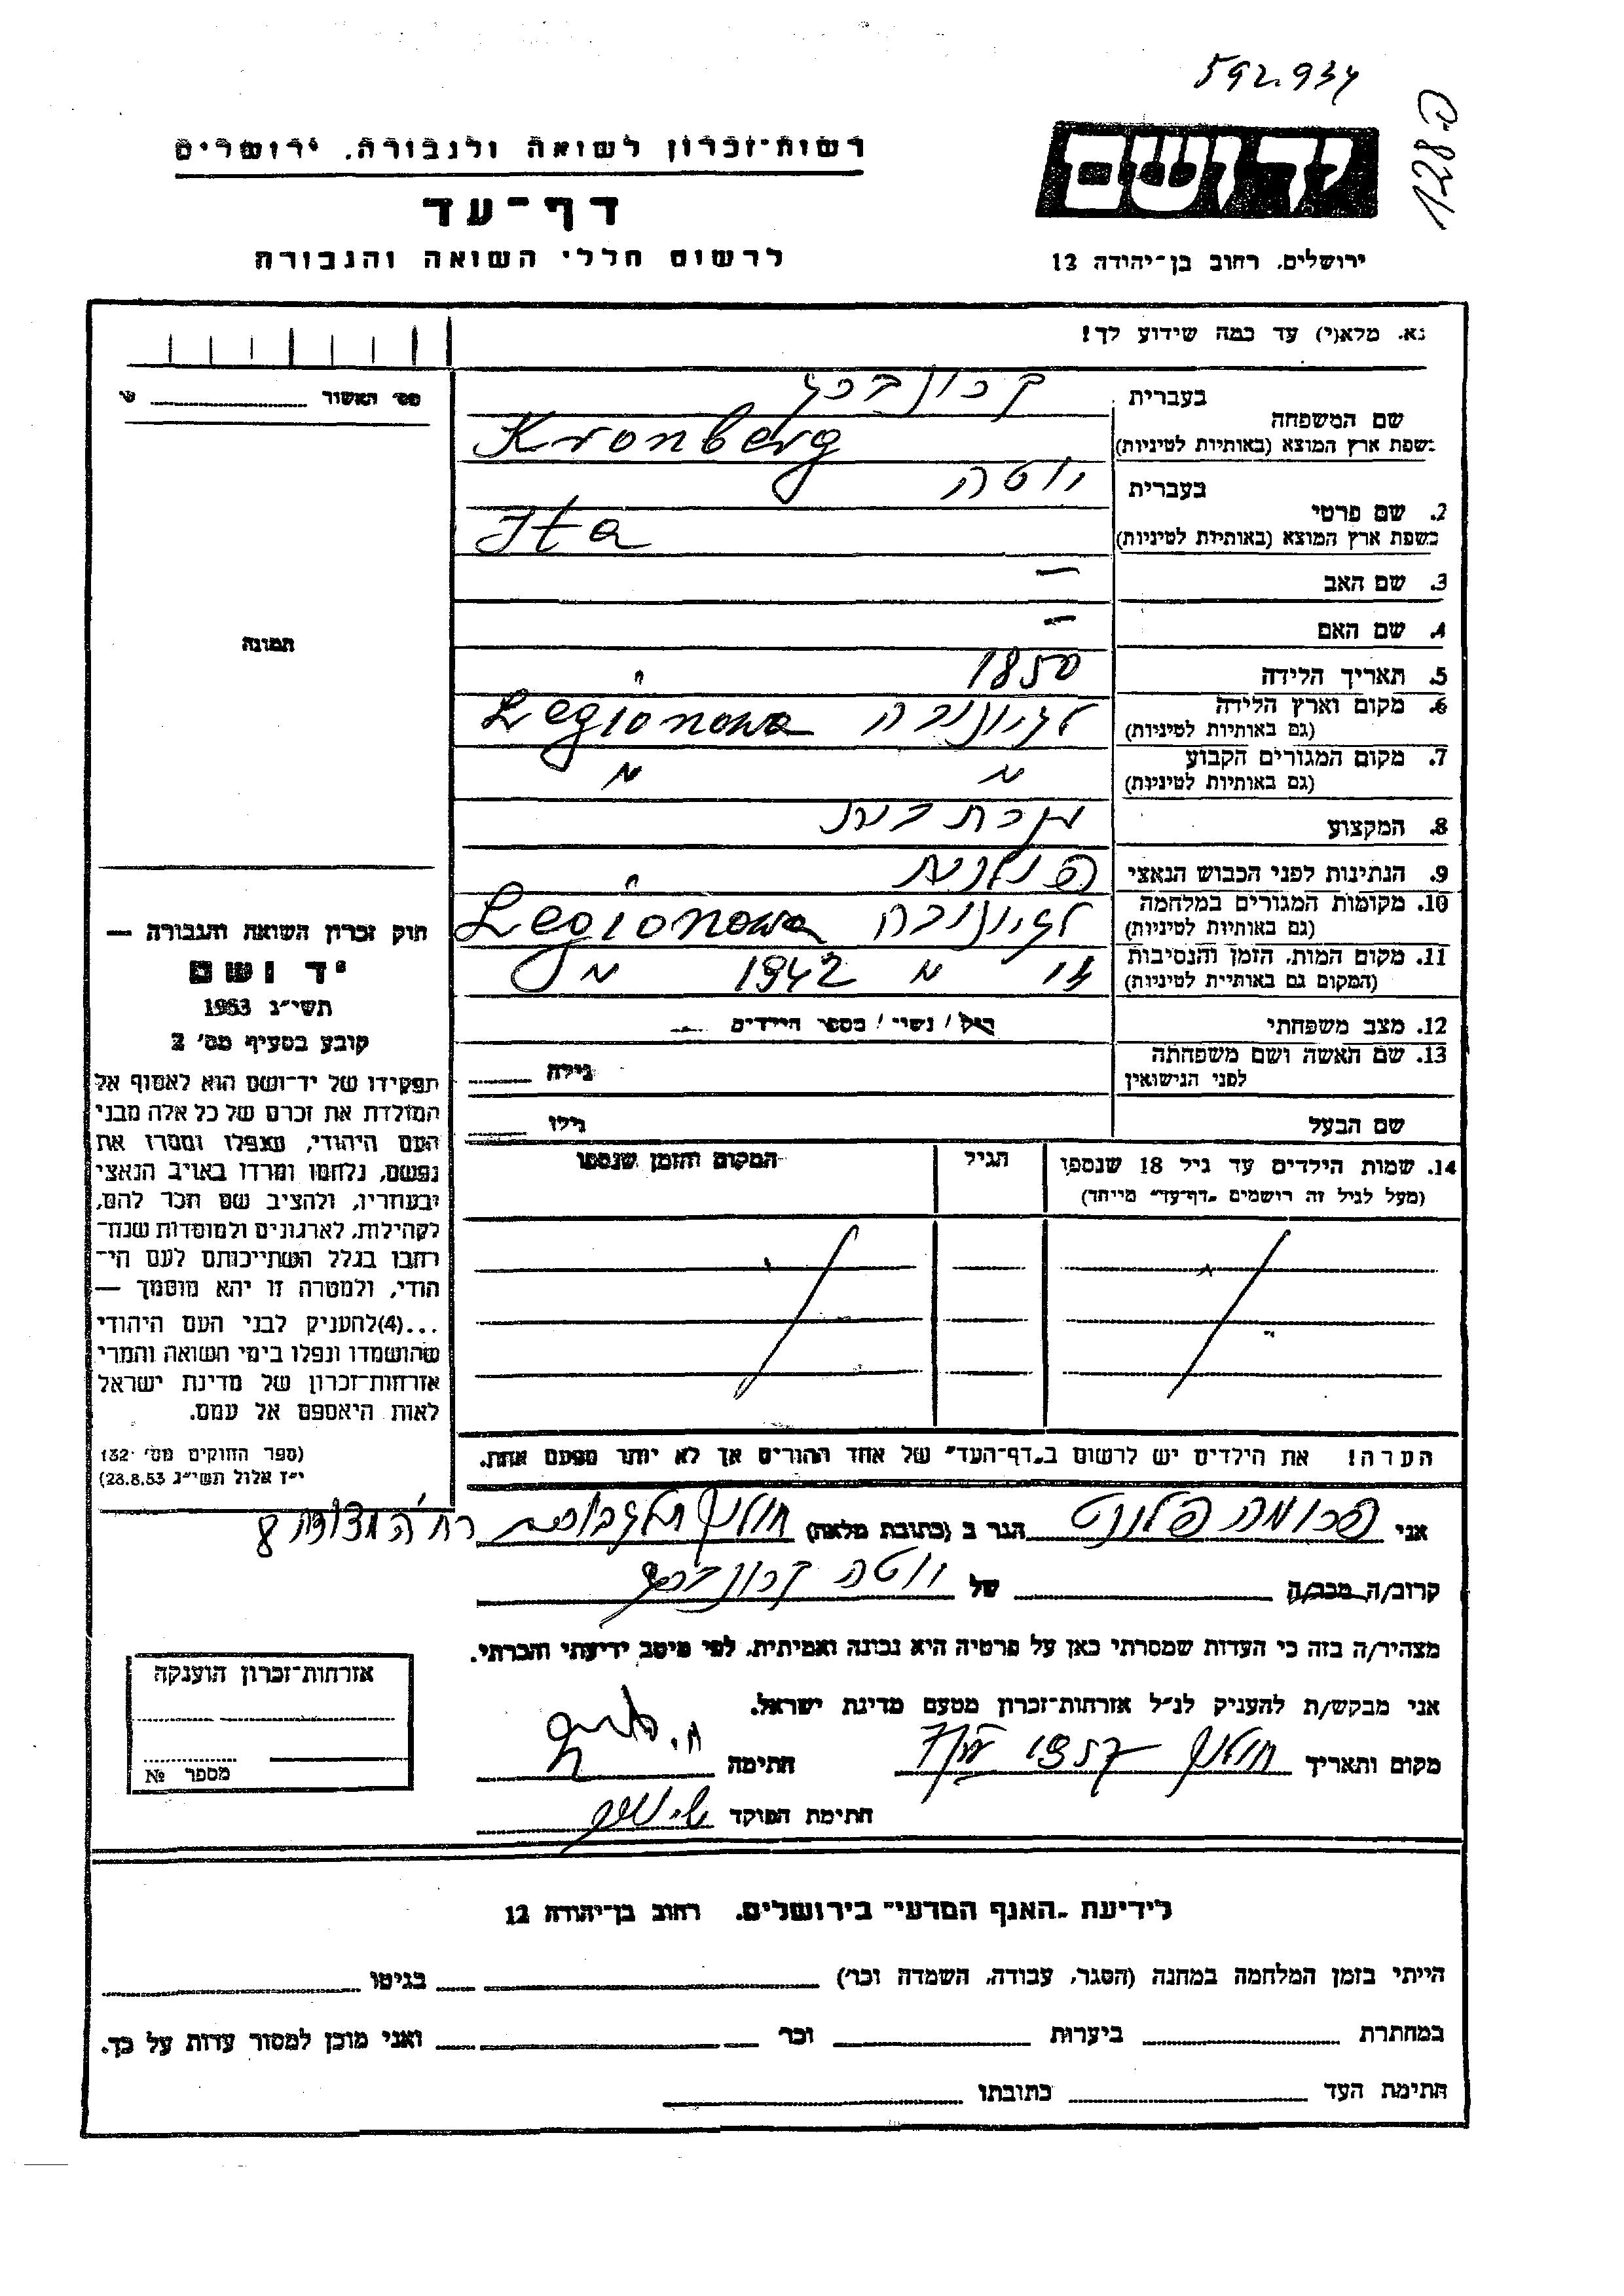 592.934
128-פ
רשות-זכרון לשואה ולגבורה. ירושלים
דף-עד
לרשום חללי השואה והגבורה
יד ושם
ירושלים. רחוב בן-יהודה 12
נא. מלא(י) עד כמה שידוע לך!
מס׳ האשור
בעברית קרונברג
שם המשפחה
בשפת ארץ המוצא (באותיות לטיניות) Kronberg
בעברית יוטה
2. שם פרטי
בשפת ארץ המוצא (באותיות לטיניות) Jta
3. שם האב —
4. שם האם —
5. תאריך הלידה 1850
6. מקום וארץ הלידה לגיונובה Legionowa
(גם באותיות לטיניות)
7. מקום המגורים הקבוע " "
(גם באותיות לטיניות)
8. המקצוע עקרת בית
9. הנתינות לפני הכבוש הנאצי פולנית
10. מקומות המגורים במלחמה לגיונובה Legionowa
(גם באותיות לטיניות)
11. מקום המות, הזמן והנסיבות " 1942 "
(המקום גם באותיות לטיניות)
12. מצב משפחתי רוק/ נשוי/ מספר הילדים
13. שם האשה ושם משפחתה גילה
לפני הנישואין
שם הבעל גילו
14. שמות הילדים עד גיל 18 שנספו הגיל המקום והזמן שנספו
(מעל לגיל זה רושמים „דף-עד" מייחד)
הערה! את הילדים יש לרשום ב„דף-העד" של אחד ההורים אך לא יותר מפעם אחת.
תמונה
חוק זכרון השואה והגבורה —
יד ושם
תשי״ג 1953
קובע בסעיף מס׳ 2
תפקידו של יד-ושם הוא לאסוף אל
המולדת את זכרם של כל אלה מבני
העם היהודי, שנפלו ומסרו את
נפשם, נלחמו ומרדו באויב הנאצי
ובעוזריו, ולהציב שם וזכר להם,
לקהילות, לארגונים ולמוסדות שנח-
רבו בגלל השתייכותם לעם הי-
הודי, ולמטרה זו יהא מוסמך —
...(4)להעניק לבני העם היהודי
שהושמדו ונפלו בימי השואה והמרי
אזרחות-זכרון של מדינת ישראל
לאות היאספם אל עמם.
(ספר החוקים מס׳ 132
י״ז אלול תשי״ג 28.8.53)
אני פרומה פלונט הגר ב (כתובת מלאה) חולון רח׳ המצודה 8
קרוב/ה מכר/ה של יוטה קרונברג
מצהיר/ה בזה כי העדות שמסרתי כאן על פרטיה היא נכונה ואמיתית, לפי מיטב ידיעתי והכרתי.
אני מבקש/ת להעניק לנ״ל אזרחות-זכרון מטעם מדינת ישראל.
מקום ותאריך חולון 1957 חתימה
חתימת הפוקד
אזרחות-זכרון הוענקה
מספר №
לידיעת „האגף המדעי" בירושלים. רחוב בן-יהודה 12
הייתי בזמן המלחמה במחנה (הסגר, עבודה, השמדה וכר׳) בגיטו
במחתרת ביערות וכר ואני מוכן למסור עדות על כך.
חתימת העד כתובתו